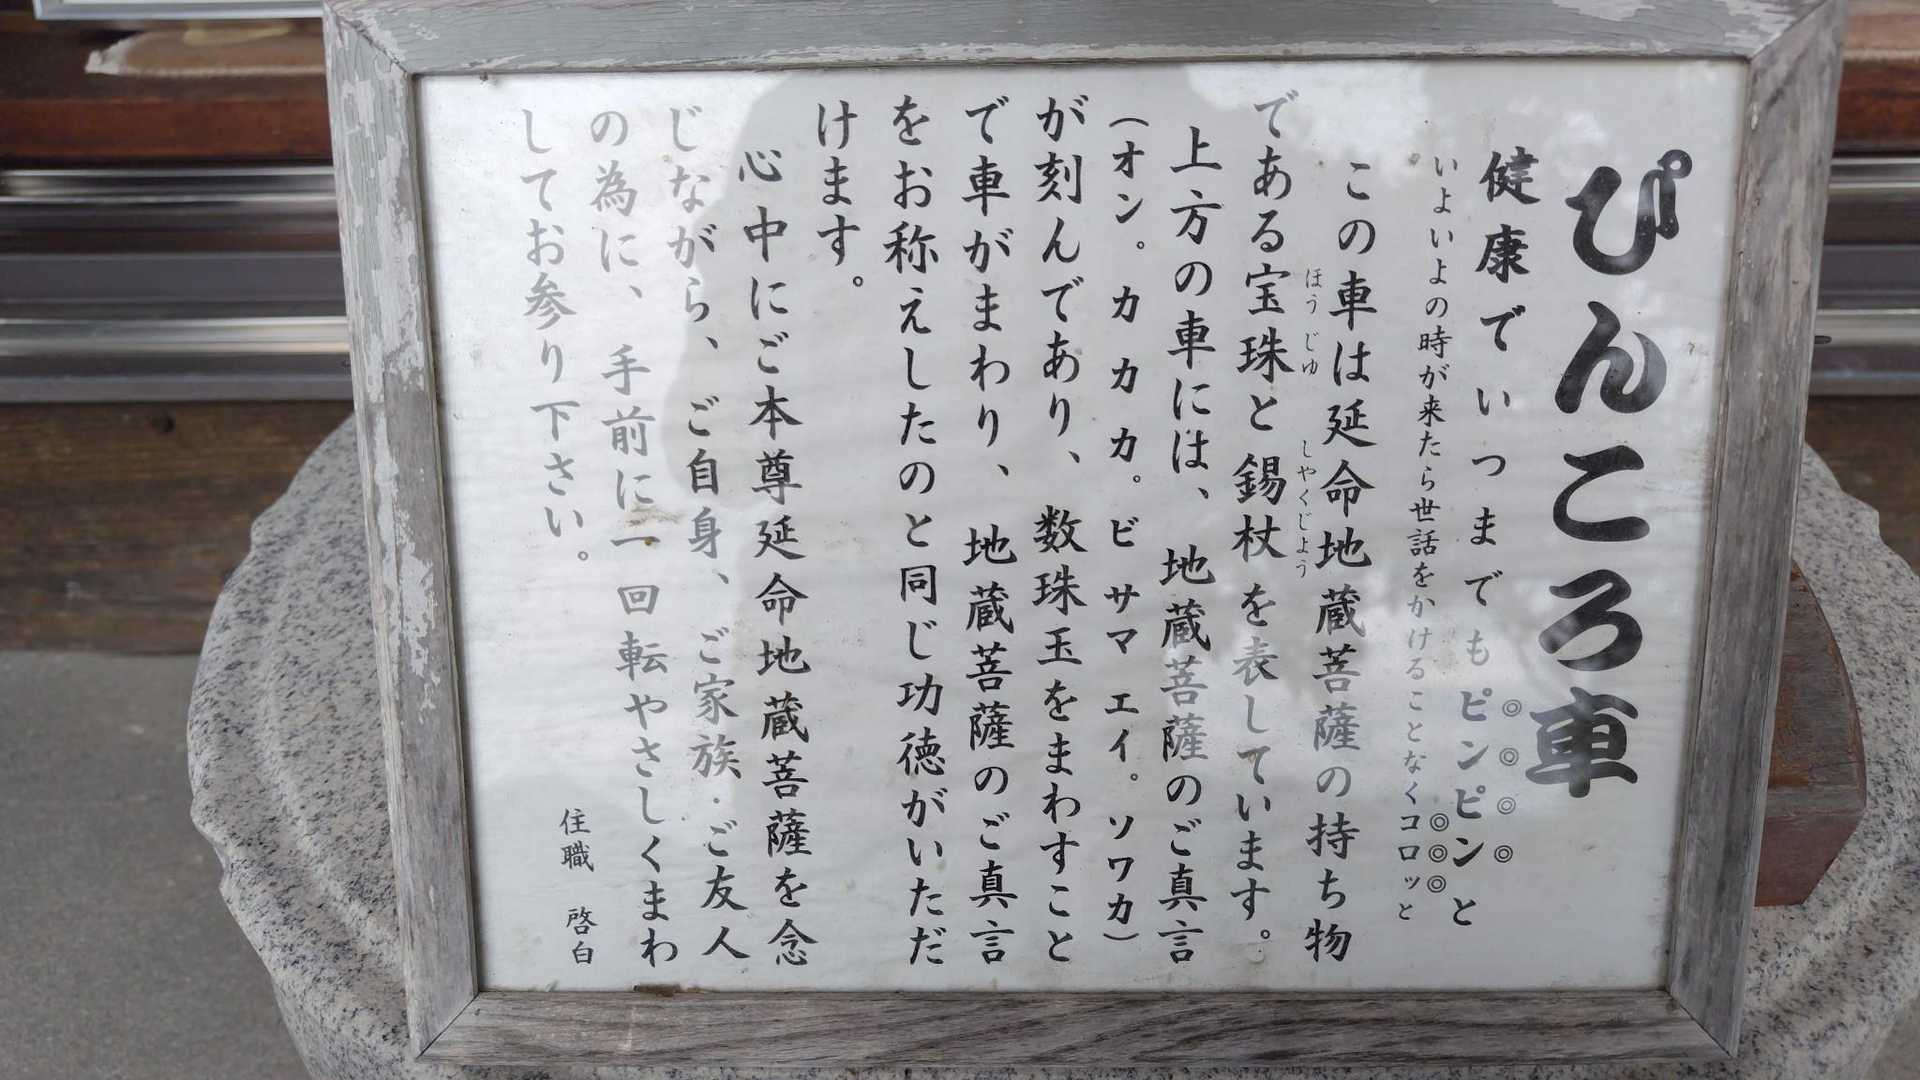 ぴんころ車
健康でいつまでもピンピンと
◎◎◎◎
いよいよの時が来たら世話をかけることなくコロッと
◎◎◎
この車は延命地蔵菩薩の持ち物
である宝珠と錫杖を表しています。
ほうじゆ
しやくじよう
上方の車には、地蔵菩薩のご真言
（オン。カカカ。ビサマエイ。ソワカ）
が刻んであり、数珠玉をまわすこと
で車がまわり、地蔵菩薩のご真言
をお称えしたのと同じ功徳がいただ
けます。
心中にご本尊延命地蔵菩薩を念
じながら、ご自身、ご家族・ご友人
の為に、手前に一回転やさしくまわ
してお参り下さい。
住職 啓白